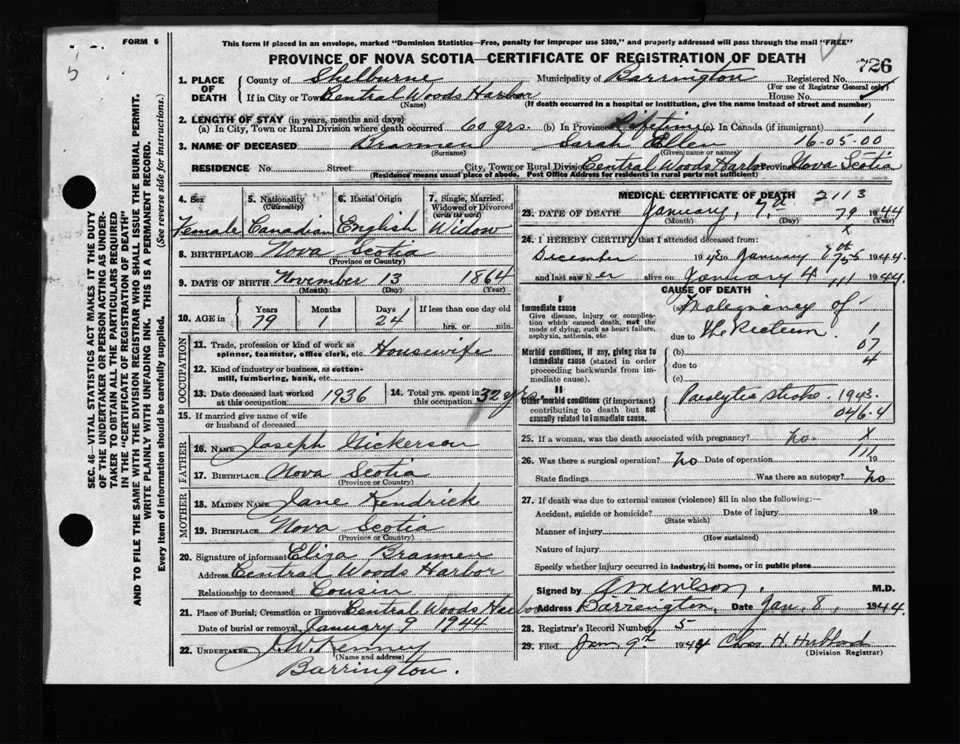 FORM 6
This form if placed in an envelope, marked "Dominion Statistics—Free, penalty for improper use $300," and properly addressed will pass through the mail "FREE"
PROVINCE OF NOVA SCOTIA—CERTIFICATE OF REGISTRATION OF DEATH
726
5
1. PLACE OF DEATH County of Shelburne Municipality of Barrington Registered No.
(For use of Registrar General only)
If in City or Town Central Woods Harbor House No.
(Name) (If death occurred in a hospital or institution, give the name instead of street and number)
2. LENGTH OF STAY (in years, months and days)
(a) In City, Town or Rural Division where death occurred 60 yrs. (b) In Province Lifetime (c) In Canada (if immigrant) 1
3. NAME OF DECEASED Brannen Sarah Ellen 16-05-00
(Surname) (Given name or names)
RESIDENCE No. Street City, Town or Rural Division Central Woods Harbor Province Nova Scotia
(Residence means usual place of abode. Post Office Address for residents in rural parts not sufficient)
4. Sex Female
5. Nationality (Citizenship) Canadian
6. Racial Origin English
7. Single, Married, Widowed or Divorced (write the word) Widow
8. BIRTHPLACE Nova Scotia
(Province or Country)
9. DATE OF BIRTH November 13 1864
(Month) (Day) (Year)
10. AGE in Years 79 Months 1 Days 24 If less than one day old hrs. or min.
OCCUPATION
11. Trade, profession or kind of work as spinner, teamster, office clerk, etc. Housewife
12. Kind of industry or business, as cotton-mill, lumbering, bank, etc.
13. Date deceased last worked at this occupation 1936
14. Total yrs. spent in this occupation 32 yrs
15. If married give name of wife or husband of deceased
FATHER
16. NAME Joseph Nickerson
17. BIRTHPLACE Nova Scotia
(Province or Country)
MOTHER
18. MAIDEN NAME Jane Kendrick
19. BIRTHPLACE Nova Scotia
(Province or Country)
20. Signature of informant Eliza Brannen
Address Central Woods Harbor
Relationship to deceased Cousin
21. Place of Burial, Cremation or Removal Central Woods Harbor
Date of burial or removal January 9 1944
22. UNDERTAKER J. W. Kenney
(Name and address)
Barrington.
MEDICAL CERTIFICATE OF DEATH 2113
23. DATE OF DEATH January, 7th 79 1944
(Month) (Day) (Year)
24. I HEREBY CERTIFY that I attended deceased from:
December 1943 to January 1944
and last saw her alive on January 4 111 1944
CAUSE OF DEATH
I
Immediate cause
Give disease, injury or complication which caused death, not the mode of dying, such as heart failure, asphyxia, asthenia, etc
(a) Malignancy of the Rectum.
due to
1
Morbid conditions, if any, giving rise to immediate cause (stated in order proceeding backwards from immediate cause).
(b) 07
due to 4
(c)
II
Other morbid conditions (if important) contributing to death but not causally related to immediate cause.
Paralytic stroke. 1943.
046.4
25. If a woman, was the death associated with pregnancy? no X
26. Was there a surgical operation? no Date of operation 111 19
State findings Was there an autopsy? no
27. If death was due to external causes (violence) fill in also the following:—
Accident, suicide or homicide? Date of injury 19
(State which)
Manner of injury
(How sustained)
Nature of injury
Specify whether injury occurred in industry, in home, or in public place
Signed by M.D.
Address Barrington, Date Jan. 8, 1944.
28. Registrar's Record Number 5
29. Filed Jan. 9th 1944 Chas H. Hubbard
(Division Registrar)
SEC. 46—VITAL STATISTICS ACT MAKES IT THE DUTY
OF THE UNDERTAKER OR PERSON ACTING AS UNDER-
TAKER TO OBTAIN ALL THE PARTICULARS REQUIRED
IN THE "CERTIFICATE OF REGISTRATION OF DEATH"
AND TO FILE THE SAME WITH THE DIVISION REGISTRAR WHO SHALL ISSUE THE BURIAL PERMIT.
WRITE PLAINLY WITH UNFADING INK. THIS IS A PERMANENT RECORD.
Every item of information should be carefully supplied. (See reverse side for instructions.)